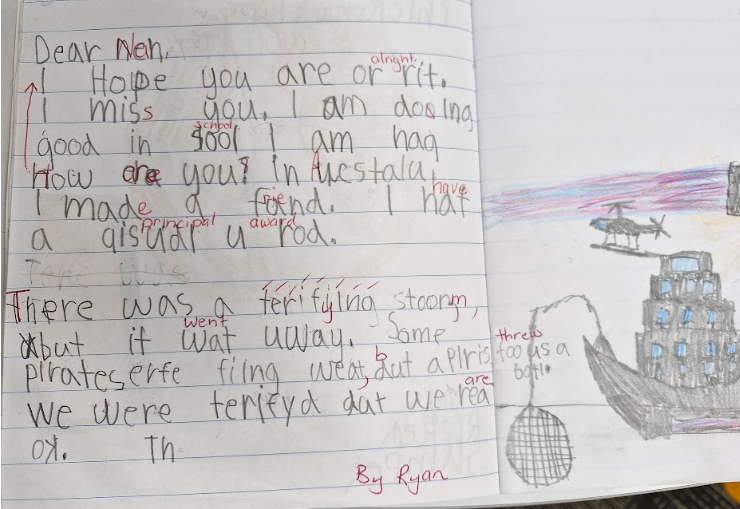 Dear Neh,
alright.
I Hope you are or rit.
I miss you. I am dooing
school
good in sool I am hag
How are you? in Aucstalu.
I made a fiend. I haf
have
principal award
a gisudr u rod.
There was a terifying stoorm,
went
but it wat uway. Some
threw
pirates erfe fiing weat, but a pIris too us a
botl.
are
we were terifyd dut we rea
ok. Th
By Ryan